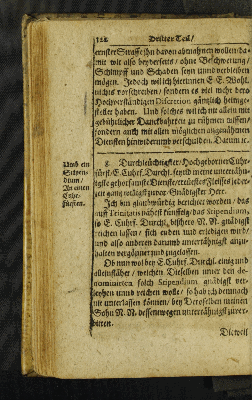 122 Dritter Theil/
ernster Straffe ihn davon abmahnen wollen/ da-
mit wir also beyderseits/ ohne Beschwerung/
Schimpff und Schaden seyn und verbleiben
mögen. Jedoch will ich hierinnen E. E. Wohl.
nichts vorschreiben/ sondern es viel mehr dero
Hochverständigen Discretion gäntzlich heimge-
stellet haben. Und solches will ich nit allein mit
gebührlicher Danckbarkeit zu rühmen wissen/
sondern auch mit allen möglichen angenähmen
Diensten hinwiederumb verschulden. Datum ꝛc.
Umb ein
Stipen-
dium/
An einen
Chur-
fürsten.
8. Durchleuchtigster/ Hochgeborner Chur-
fürst/ E. Churf. Durchl. seynd meine unterthä-
nigste gehorsamste Dienste/ eusersten Fleisses jeder-
zeit gantz willigst zuvor. Gnädigster Herr.
Ich bin glaubwürdig berichtet worden/ das
auff Trinitatis nähest künfftig/ das Stipendium,
so E. Churf. Durchl. bißhero N. N. gnädigst
reichen lassen/ sich enden und erledigen wird/
und also anderen darumb unterthänigst anzu-
halten vergönnet und zugelassen.
Ob nun wol bey E. Churf. Durchl. einig und
allein stähet/ welchen Dieselben unter den de-
nominirten solch Stipendium gnädigst ver-
leyhen und reichen wolle/ so hab ich dennoch
nit unterlassen können/ bey Deroselben meinen
Sohn N. N. dessentwegen unterthänigst zu ver-
bitten.
Dieweil